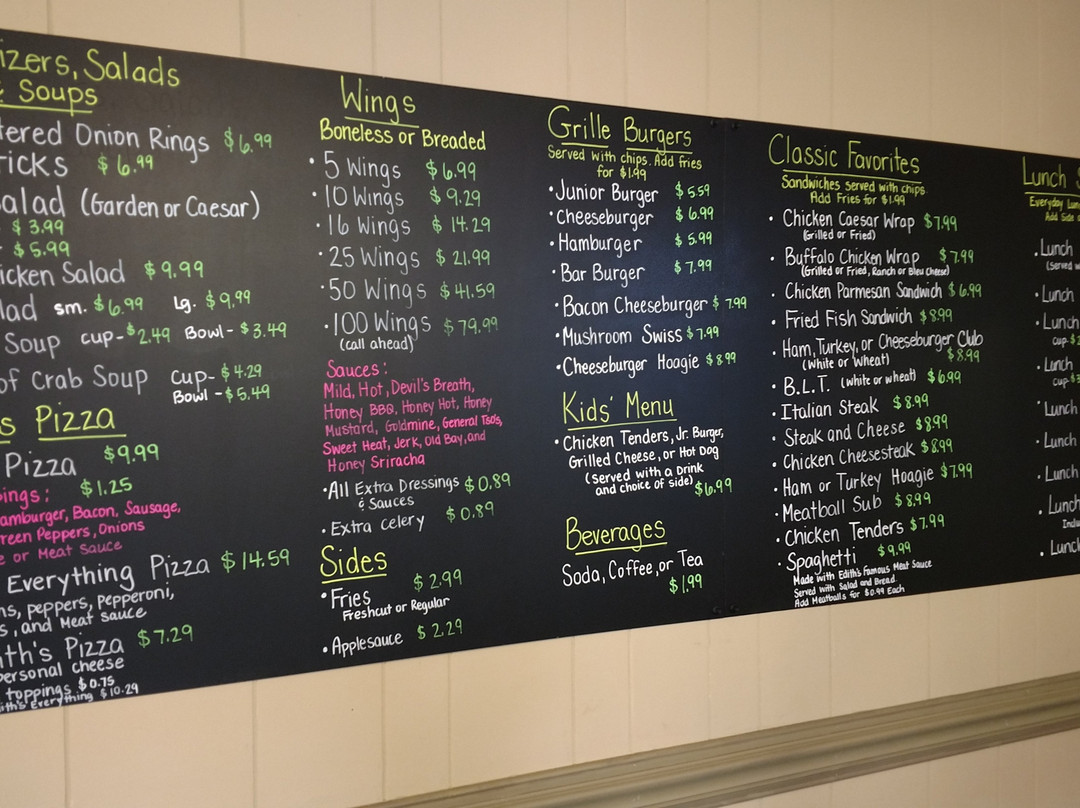 izers, Salads
& Soups
tered Onion Rings $6.99
ricks $6.99
alad (Garden or Caesar)
$3.99
$5.99
icken Salad $9.99
lad sm. $6.99 Lg. $9.99
Soup cup-$2.49 Bowl-$3.49
of Crab Soup Cup-$4.29
Bowl-$5.49
s Pizza
Pizza $9.99
pings: $1.25
amburger, Bacon, Sausage,
reen Peppers, Onions
e or Meat Sauce
Everything Pizza $14.59
ns, Peppers, Pepperoni,
s, and Meat Sauce
ith's Pizza $7.29
personal cheese
toppings $0.75
ith's Everything $10.29
Wings
Boneless or Breaded
• 5 Wings $6.99
• 10 Wings $9.29
• 16 Wings $14.29
• 25 Wings $21.99
• 50 Wings $41.59
• 100 Wings $79.99
(call ahead)
Sauces:
Mild, Hot, Devil's Breath,
Honey BBQ, Honey Hot, Honey
Mustard, Goldmine, General Tso's,
Sweet Heat, Jerk, Old Bay, and
Honey Sriracha
• All Extra Dressings $0.89
& Sauces
• Extra celery $0.89
Sides
• Fries $2.99
Freshcut or Regular
• Applesauce $2.29
Grille Burgers
Served with chips. Add fries
for $1.99
• Junior Burger $5.59
• Cheeseburger $6.99
• Hamburger $5.99
• Bar Burger $7.99
• Bacon Cheeseburger $7.99
• Mushroom Swiss $7.99
• Cheeseburger Hoagie $8.99
Kids' Menu
• Chicken Tenders, Jr. Burger,
Grilled Cheese, or Hot Dog
(Served with a Drink
and choice of side) $6.99
Beverages
Soda, Coffee, or Tea
$1.99
Classic Favorites
Sandwiches served with chips.
Add Fries for $1.99
• Chicken Caesar Wrap $7.99
(Grilled or Fried)
• Buffalo Chicken Wrap $7.99
(Grilled or Fried, Ranch or Bleu Cheese)
• Chicken Parmesan Sandwich $6.99
• Fried Fish Sandwich $8.99
• Ham, Turkey, or Cheeseburger Club
(White or Wheat) $8.99
• B.L.T. (white or wheat) $6.99
• Italian Steak $8.99
• Steak and Cheese $8.99
• Chicken Cheesesteak $8.99
• Ham or Turkey Hoagie $7.99
• Meatball Sub $8.99
• Chicken Tenders $7.99
• Spaghetti $9.99
Made with Edith's Famous Meat Sauce
Served with Salad and Bread
Add Meatballs for $0.99 Each
Lunch S
Everyday Lun
Add Side
• Lunch
(Served w
• Lunch
• Lunch
cup-$
• Lunch
cup-$
• Lunch
• Lunch
• Lunch
• Lunch
Inclu
• Lunch